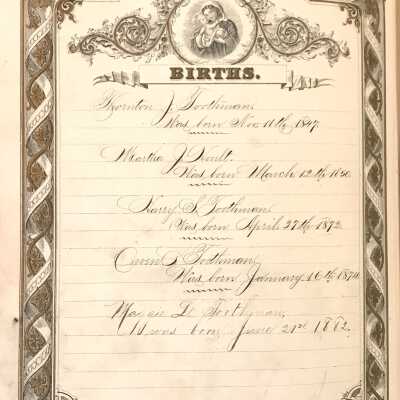 BIRTHS.
Thornton J. Toothman
Was born Nov 11th 1847.
Martha J. Hoult.
Was born March 12th 1850
Harry S. Toothman
Was born April 27th 1872.
Owen S Toothman
Was born January 16th
Toothman,
was born June 21st 1882.